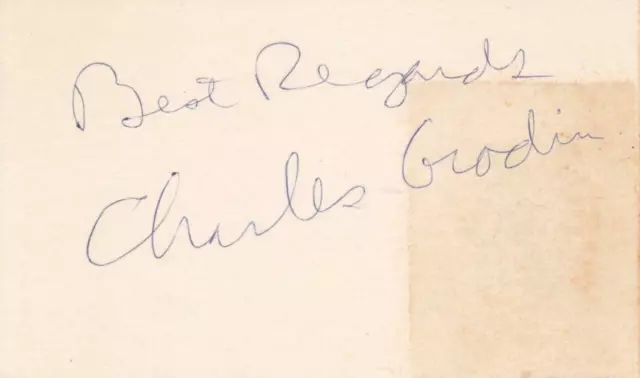 Best Regards
Charles Grodin